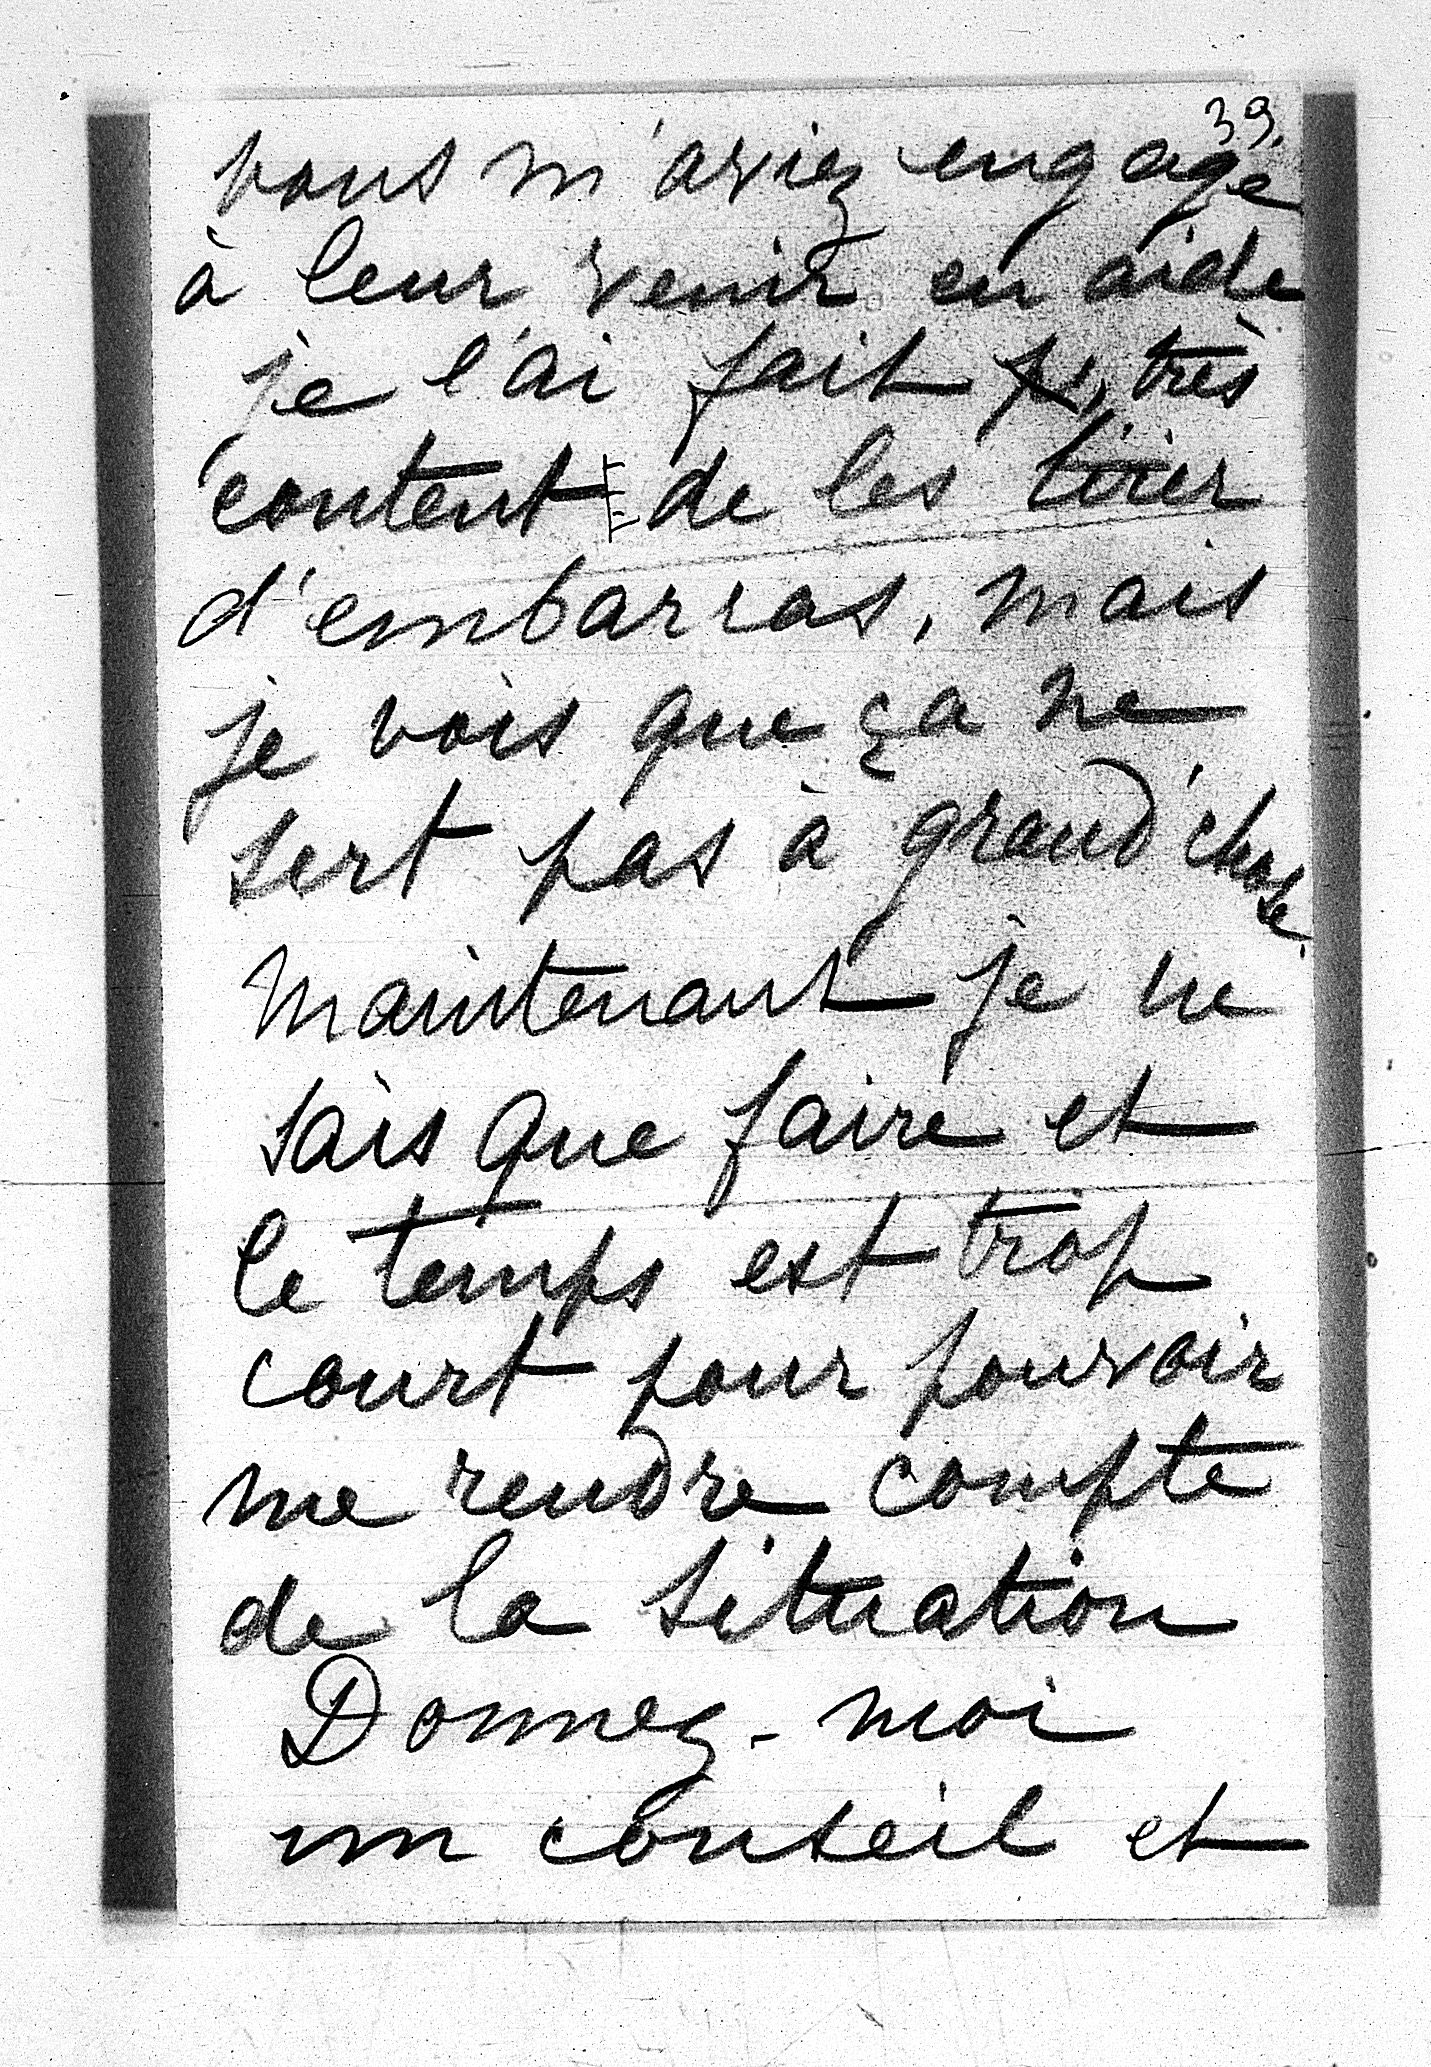 39.
vous m'aviez engagé
à leur venir en aide
je l'ai fait, très
content de les tirer
d'embarras, mais
je vois que ça ne
sert pas à grand'chose.
Maintenant je ne
sais que faire et
le temps est trop
court pour pouvoir
me rendre compte
de la situation
Donnez-moi
un conseil et